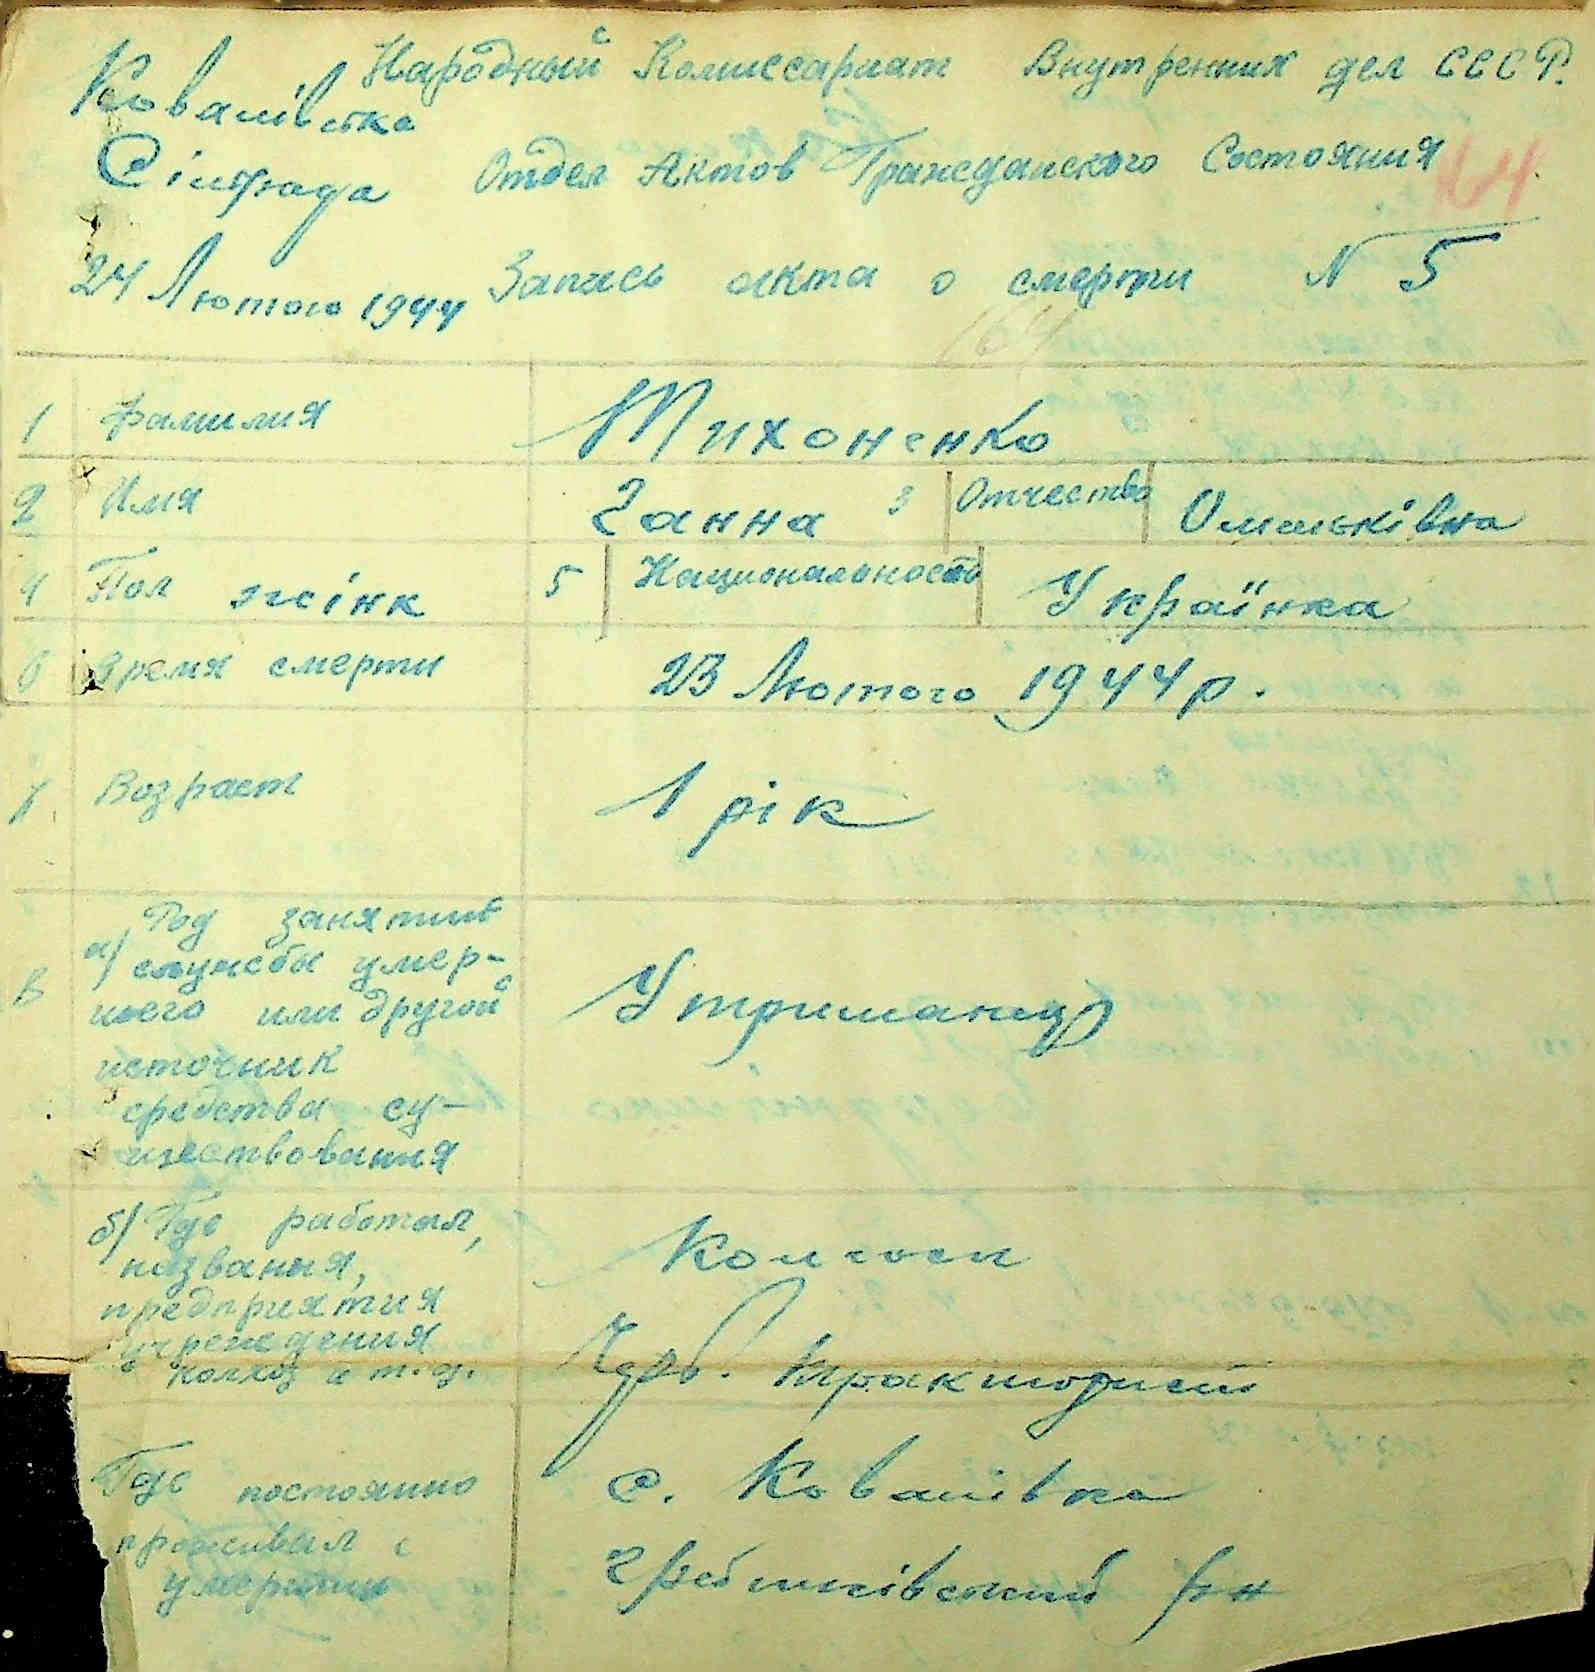 Народный Комиссариат Внутренних дел СССР.
Ковалівська
Сільрада
Отдел Актов Гражданского Состояния
164
24 Лютого 1944
Запись акта о смерти N 5
164
1 Фамилия Тихоненко
2 Имя Ганна 3 Отчество Омельківна
4 Пол жінк 5 Национальность Українка
6 Время смерти 23 Лютого 1944 р.
7 Возраст 1 рік
8 а) Род занятий
службы умер-
шего или другой
источник
средства су-
ществования
Утриманец
б) Где работал,
названия,
предприятия
учреждения
колхоз и т.д.
Колгосп
Тракторист
Где постоянно
проживал
умерший
с. Ковалівка
Гребінківський р-н